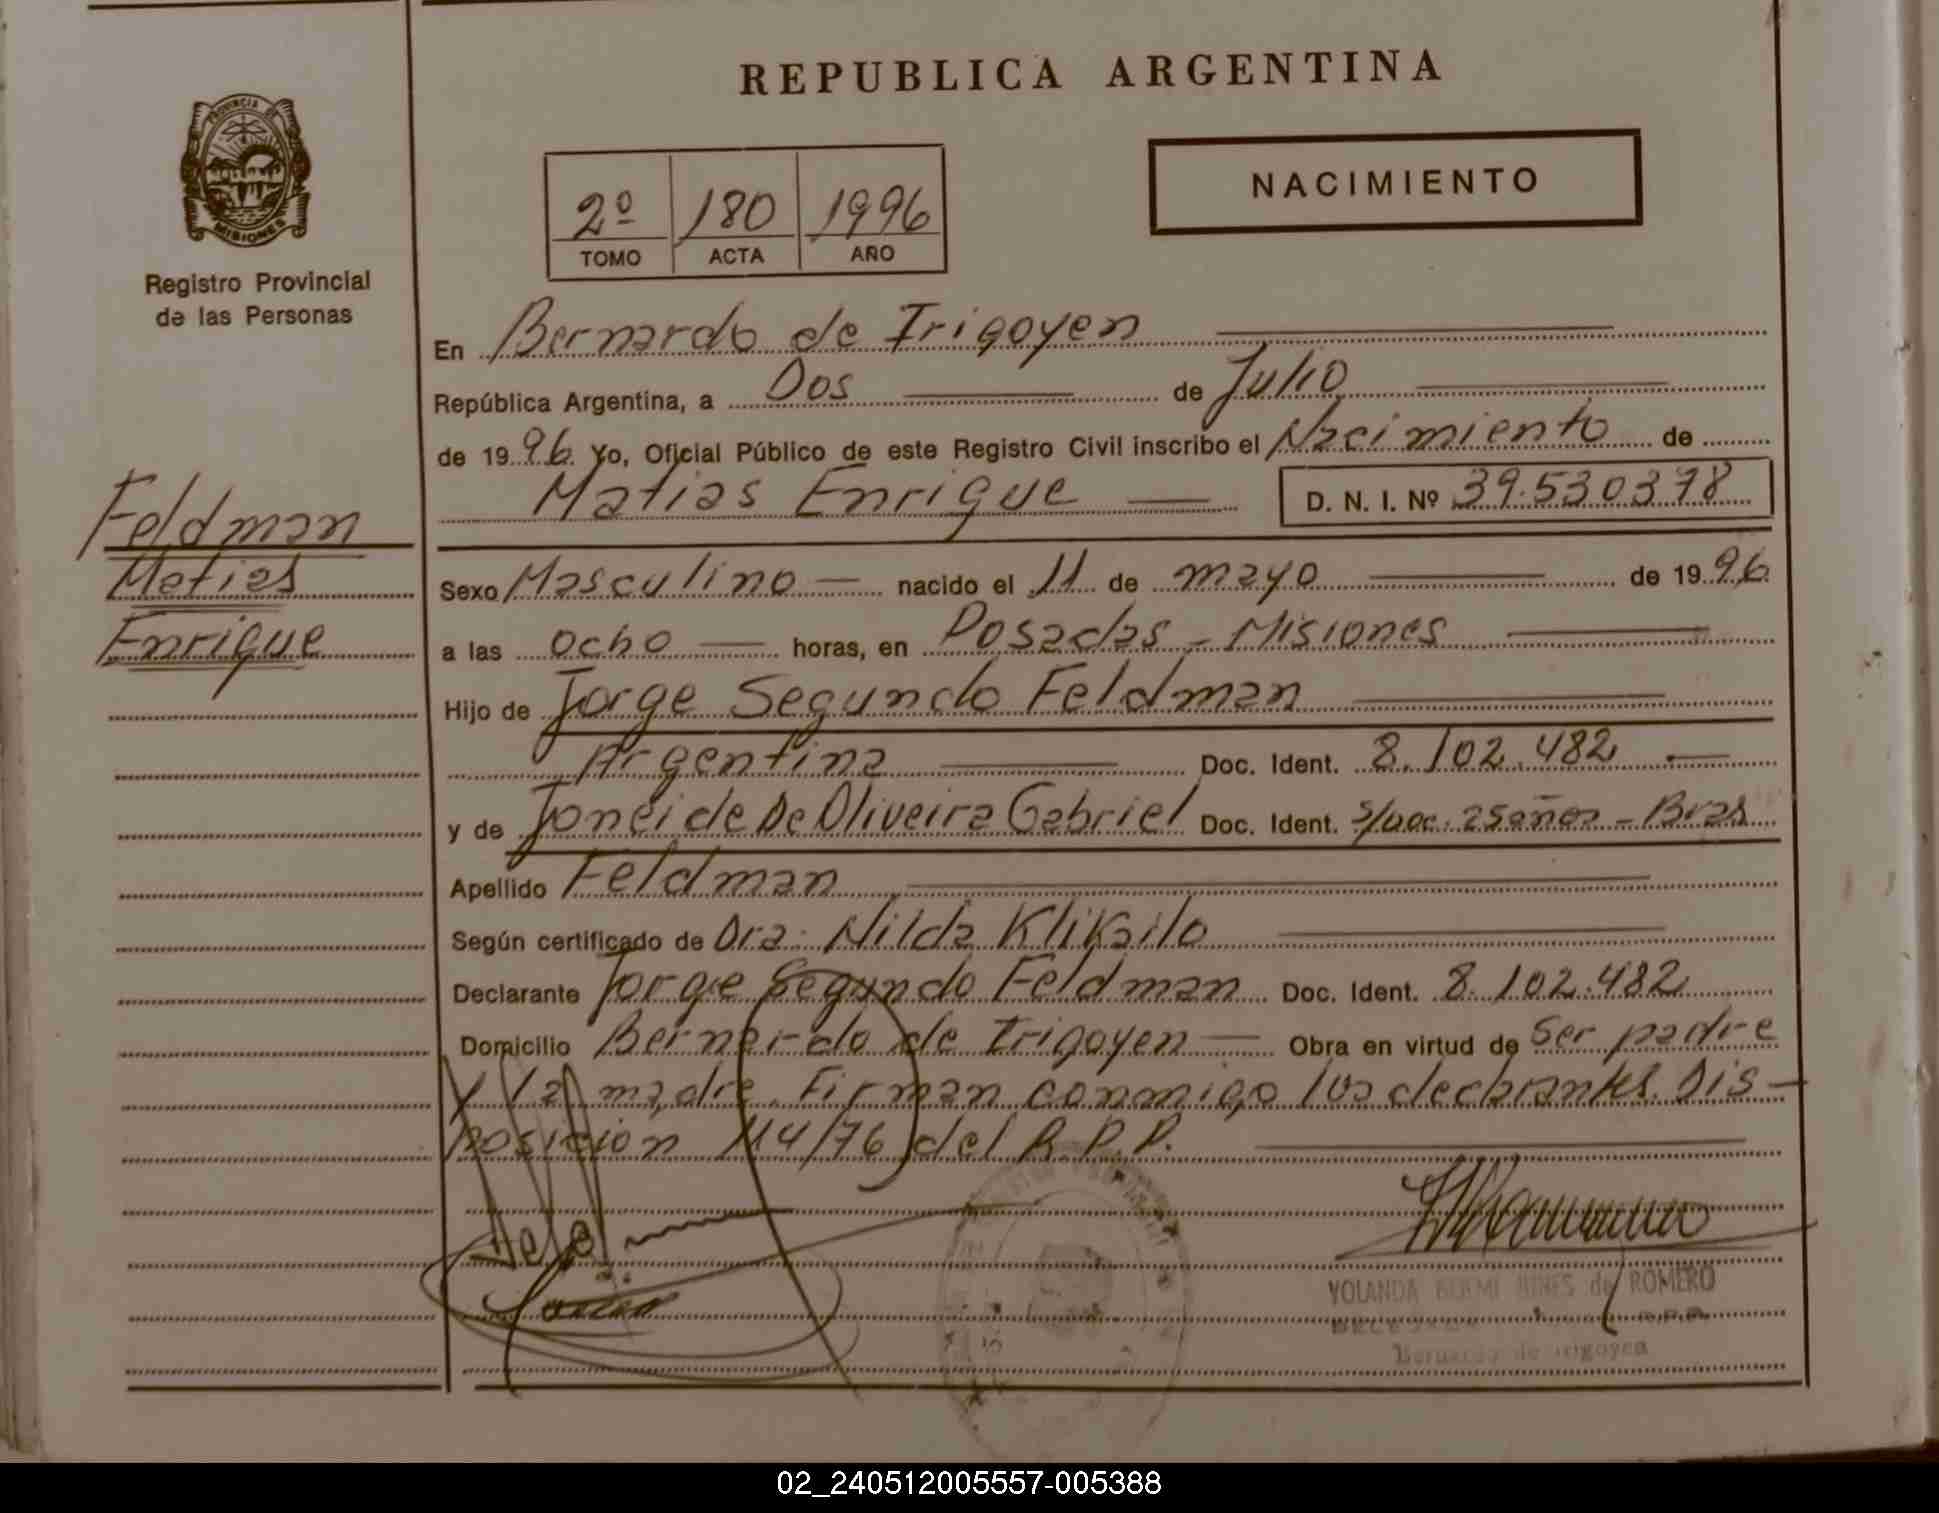 REPUBLICA ARGENTINA
PROVINCIA DE
MISIONES
Registro Provincial
de las Personas
2º 180 1996
TOMO ACTA AÑO
NACIMIENTO
En Bernardo de Irigoyen
República Argentina, a Dos de Julio
de 1996 Yo, Oficial Público de este Registro Civil inscribo el Nacimiento de
Matias Enrique D. N. I. Nº 39.530378
Feldman
Matias
Enrique
Sexo Masculino nacido el 11 de mayo de 1996
a las ocho horas, en Posadas - Misiones
Hijo de Jorge Segundo Feldman
Argentina Doc. Ident. 8.102.482
y de Joneide De Oliveira Gabriel Doc. Ident. s/doc. 25 años - Bras
Apellido Feldman
Según certificado de Dra. Nilda Klikailo
Declarante Jorge Segundo Feldman Doc. Ident. 8.102.482
Domicilio Bernardo de Irigoyen Obra en virtud de Ser padre
y la madre. Firman conmigo los declarantes. Dis-
posicion 114/76 del R.P.P.
YOLANDA de ROMERO
Bernardo de Irigoyen
02_240512005557-005388